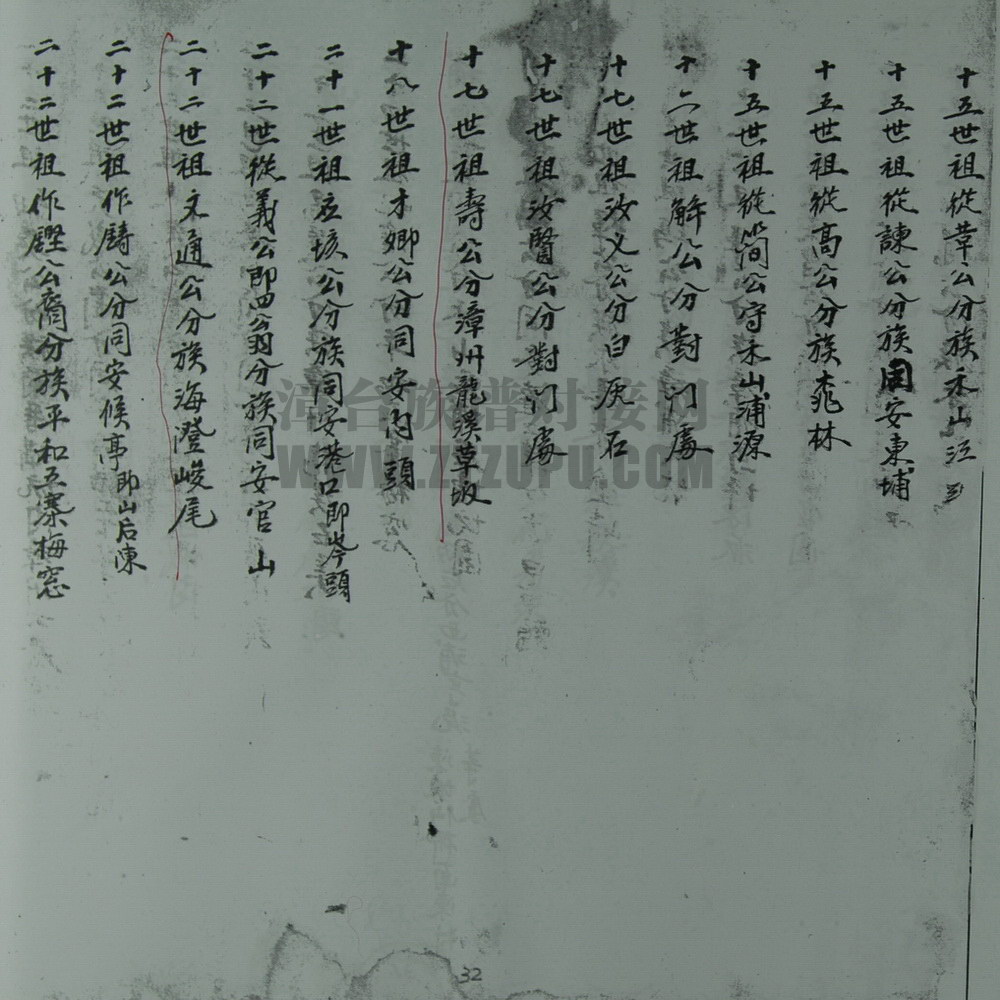 十五世祖從章公分族禾山江
十五世祖從諫公分族同安東埔
十五世祖從高公分族桃林
十五世祖從簡公守禾山浦源
十二世祖解公分對门處
十七世祖汝义公分白灰石
十七世祖汝醫公分對门處
十七世祖壽公分漳州龍溪草坂
十八世祖才卿公分同安内頭
二十一世祖应垓公分族同安港口即岑頭
二十二世從義公即四翁分族同安官山
二十二世祖文通公分族海澄峻尾
二十二世祖作鑄公分同安候亭即山后陳
二十二世祖作鏗公裔分族平和五寨梅窓
漳台族譜对接网
WWW.ZTZUPU.COM
32